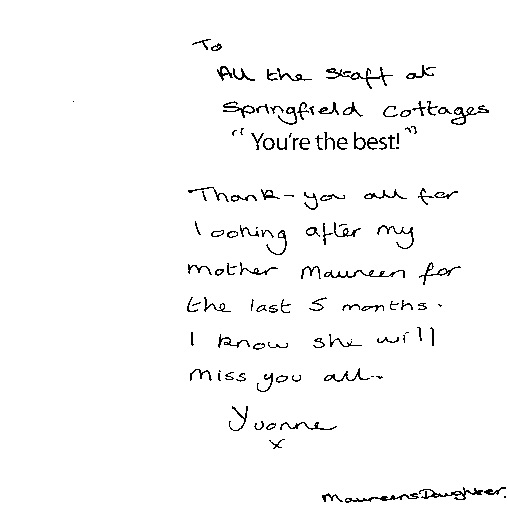 To
All the staff at
Springfield Cottages
"You're the best!"
Thank-you all for
looking after my
mother Maureen for
the last 5 months.
I know she will
miss you all.
Yvonne
x
Maureens Daughter.